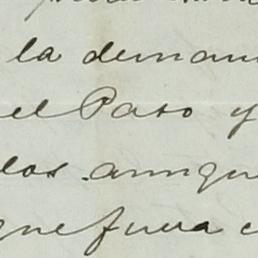 la deman
el Paso y
los aunque
que fuera c